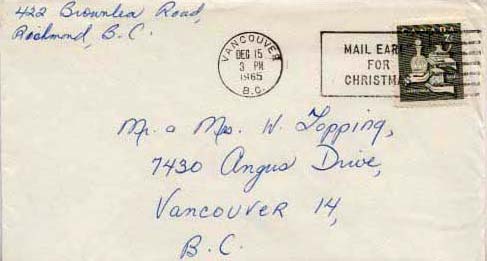 422 Brownlea Road,
Richmond, B.C.
VANCOUVER
DEC 15
3 PM
1965
B.C.
MAIL EAR
FOR
CHRISTMA
CANADA
Mr. a Mrs. W. Topping,
7430 Angus Drive,
VANCOUVER 14,
B.C.